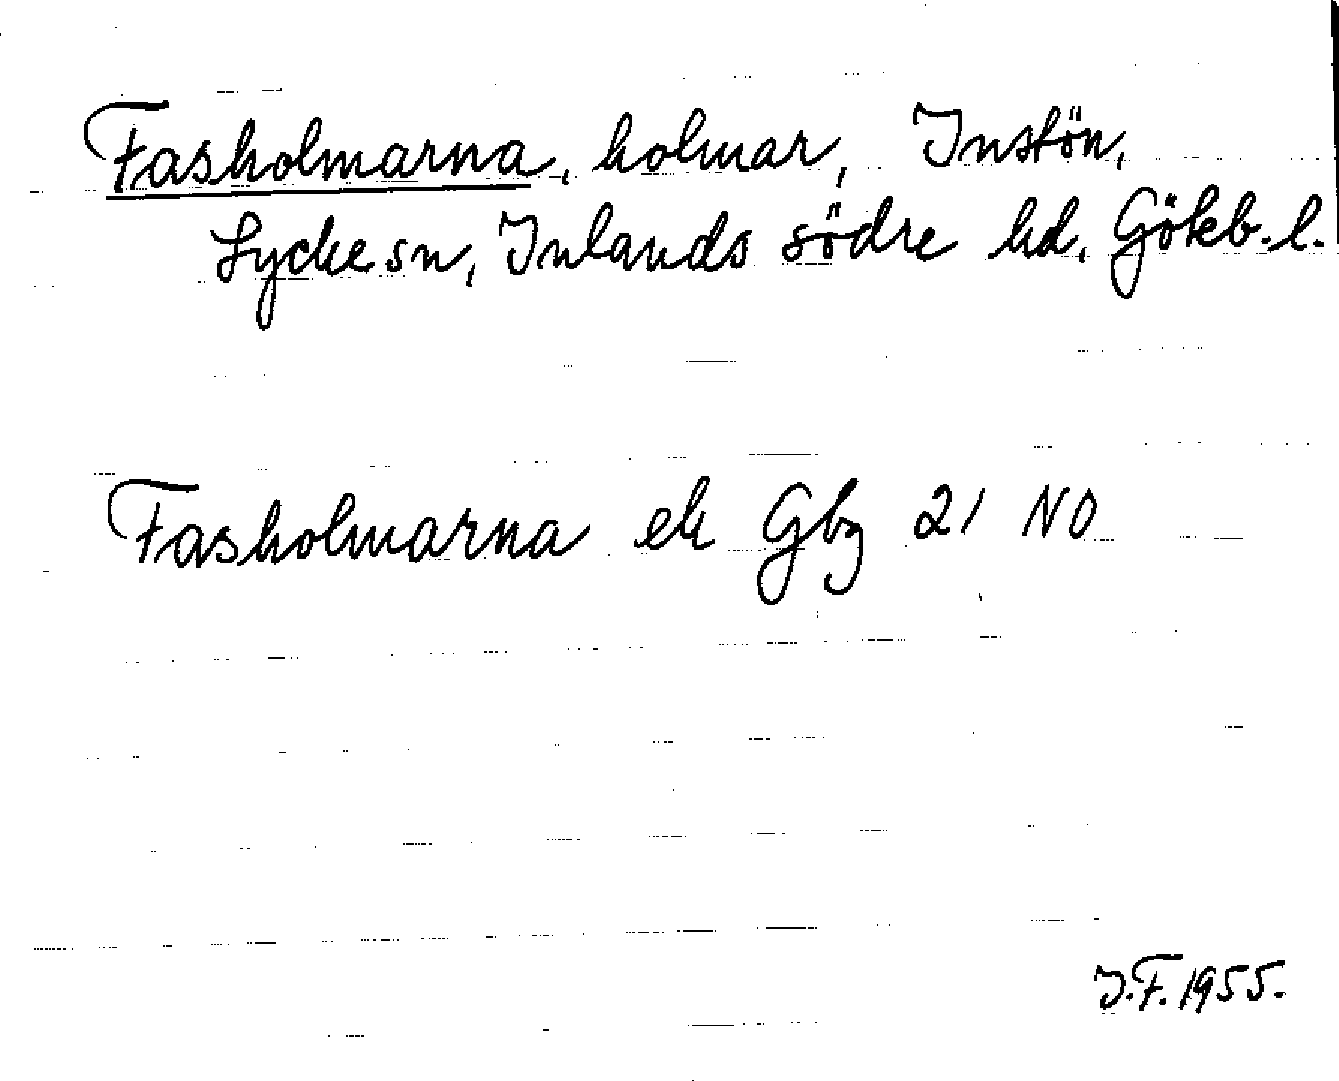 Fasholmarna, holmar, Instön,
Lycke sn, Inlands södre hd. Gökb. l.
Fasholmarna ek Gbg 21 NO
J.F. 1955.